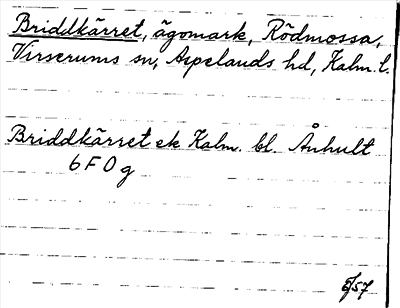 Briddkärret, ägomark, Rödmossa,
Virserums sn, Aspelands hd, Kalm. l.
Briddkärret ek Kalm. bl. Ånhult
6 F 0 g
/57